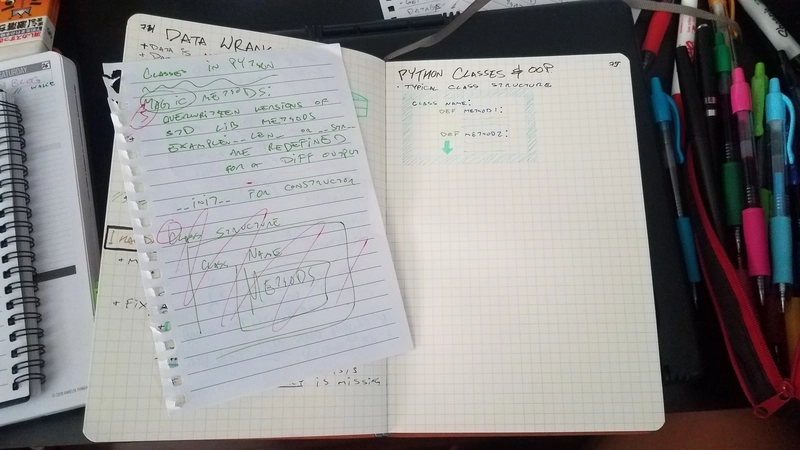 74
DATA WRAN
+ DATA IS
CLASSES IN PYTHON
MAGIC METHODS:
OVERWRITTEN VERSIONS OF
STD LIB METHODS
EXAMPLE __LEN__ OR __STR__
ARE REDEFINED
FOR A DIFF OUTPUT
__INIT__ FOR CONSTRUCTOR
STRUCTURE
CLASS NAME
METHODS
+ FIX
IS MISSING
75
PYTHON CLASSES & OOP
• TYPICAL CLASS STRUCTURE
CLASS NAME:
DEF METHOD1:
DEF METHOD2: